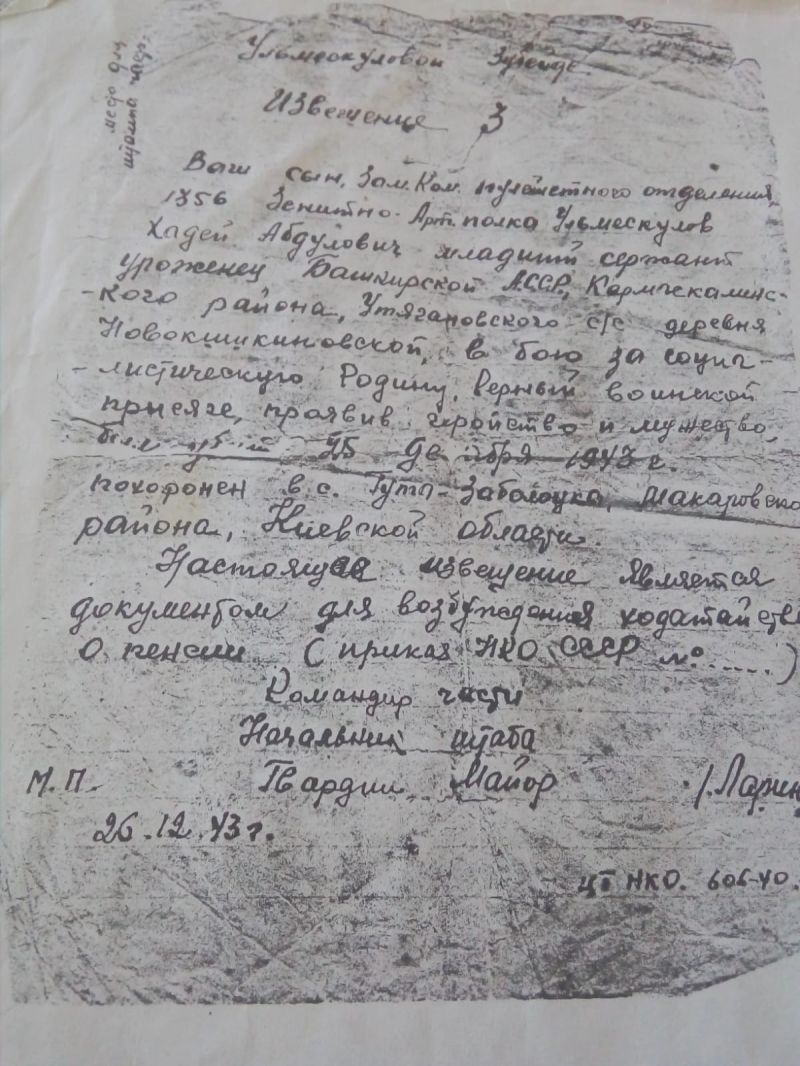 место для
штампа части
Ульмескуловой Зубейде
Извещение 3
Ваш сын, Зам. Ком. пулеметного отделения,
1356 Зенитно-Арт. полка Ульмескулов
Хадей Абдулович младший сержант
Уроженец Башкирской АССР, Кармаскалинс-
-кого района, Утягановского с/с деревня
Новокшикиновской, в бою за социа-
-листическую Родину, верный воинской
присяге, проявив геройство и мужество,
был убит 25 декабря 1943 г.
похоронен в с. Гута-Заболоцка, Макаровско
района, Киевской области.
Настоящее извещение является
документом для возбуждения ходатайств
О пенсии (приказ НКО СССР № .....)
Командир части
Начальник штаба
М.П. Гвардии Майор /Ларин
26.12.43 г.
НКО. 606-40.